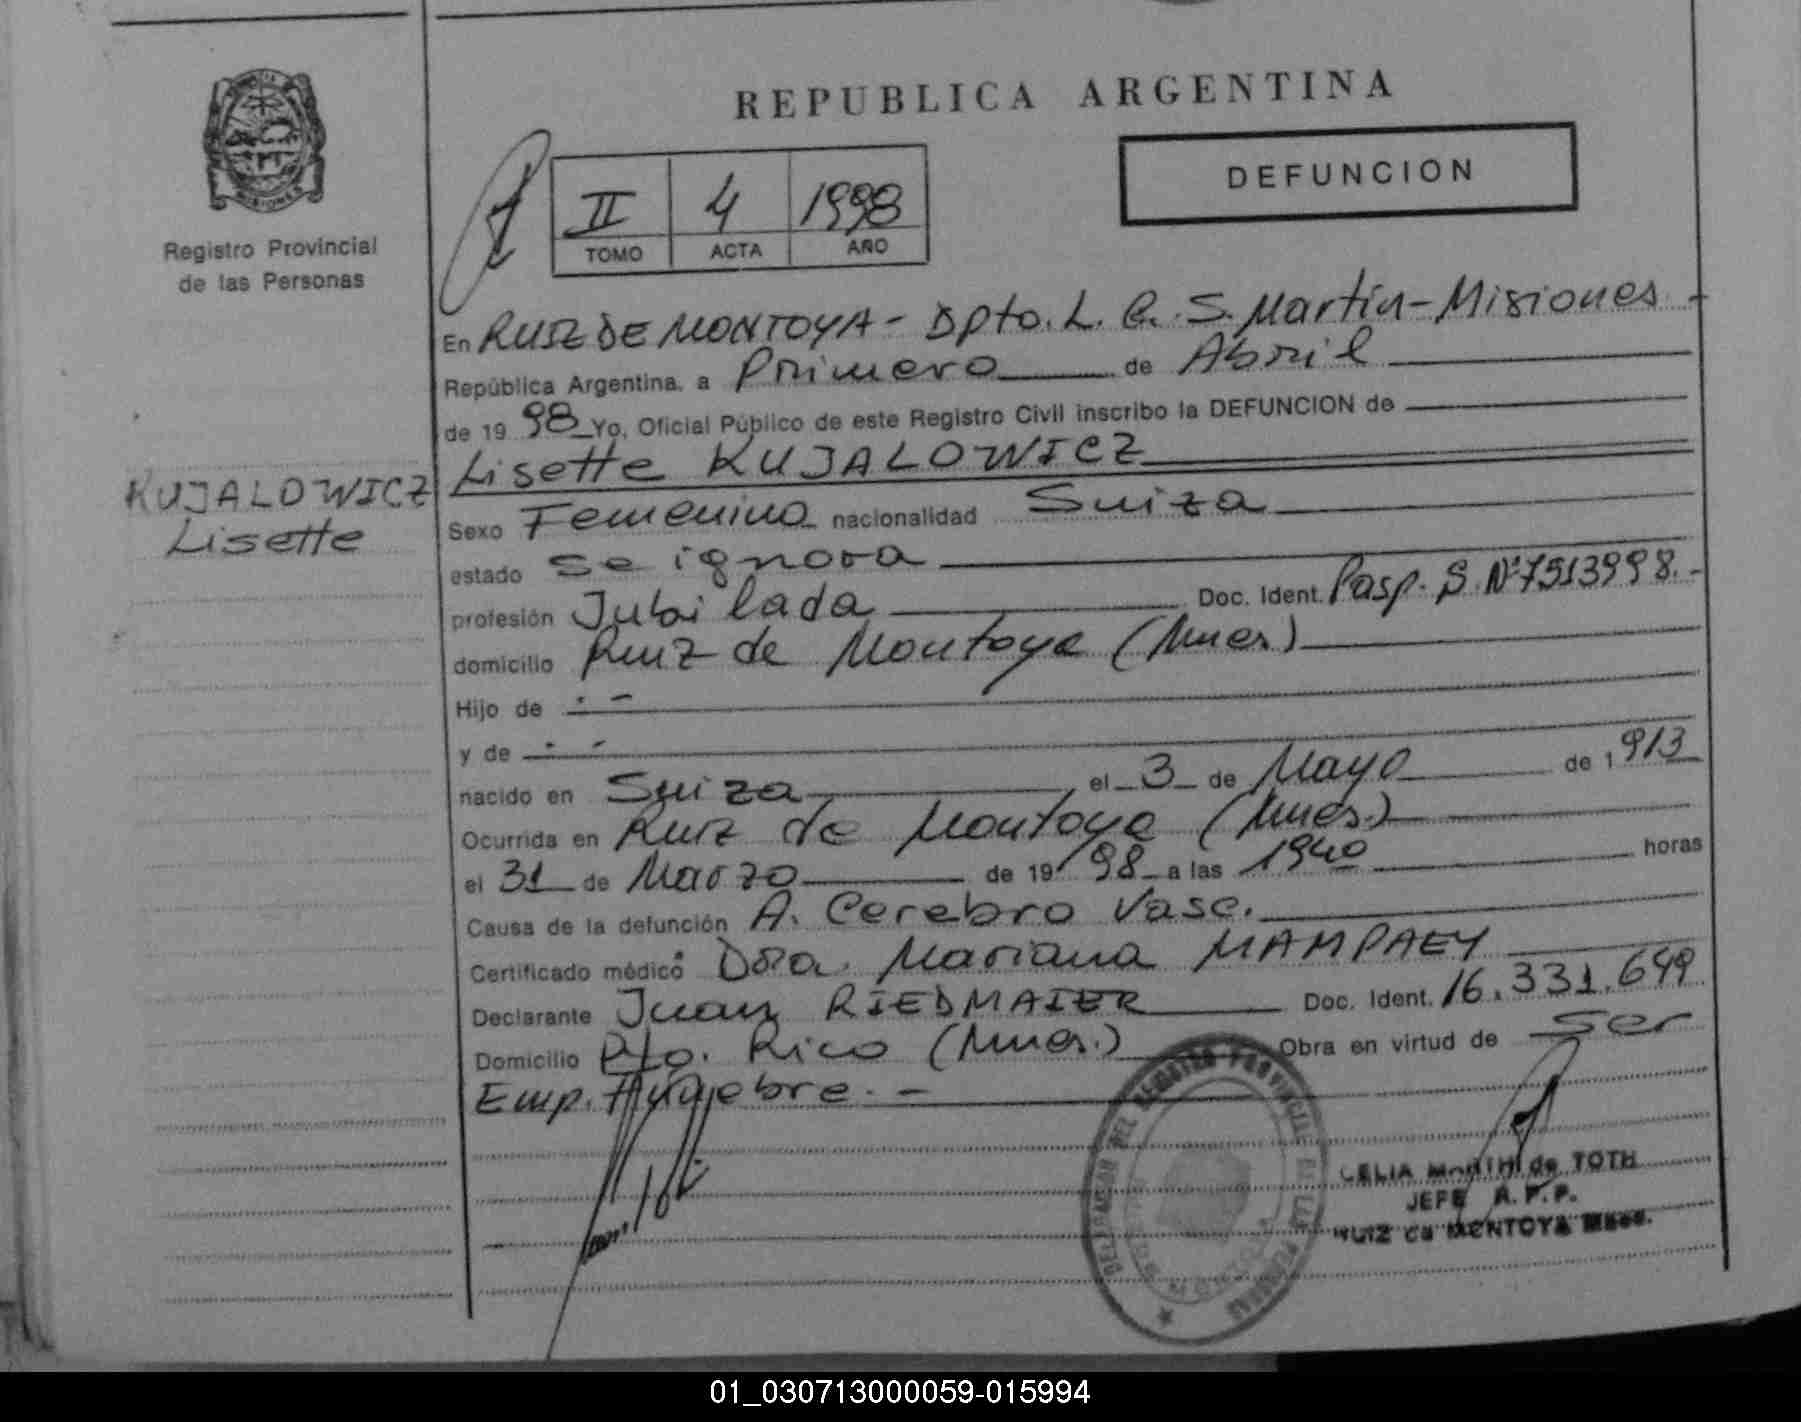 REPUBLICA ARGENTINA
DEFUNCION
II 4 1998
TOMO ACTA AÑO
MISIONES
Registro Provincial
de las Personas
En RUIZ DE MONTOYA - Dpto. L. G. S. Martín - Misiones -
República Argentina, a Primero de Abril
de 1998 Yo, Oficial Público de este Registro Civil inscribo la DEFUNCION de
Lisette KUJALOWICZ
KUJALOWICZ
Lisette
Sexo Femenino nacionalidad Suiza
estado se ignora
profesión Jubilada Doc. Ident. Pasp. S. Nº 7513998.-
domicilio Ruiz de Montoya (Mnes.)
Hijo de . -
y de . -
nacido en Suiza el 3 de Mayo de 1913
Ocurrida en Ruiz de Montoya (Mnes.)
el 31 de Marzo de 1998 a las 1940 horas
Causa de la defunción A. Cerebro Vasc.
Certificado médico Dra. Mariana MAMPAEY
Declarante Juan RIEDMAIER Doc. Ident. 16.331.649
Domicilio Pto. Rico (Mnes.) Obra en virtud de Ser
Emp. Fúnebre. -
DEL REGISTRO PROVINCIAL DE LAS PERSONAS
CELIA de TOTH
JEFE R.P.P.
RUIZ de MONTOYA Mnes.
01_030713000059-015994